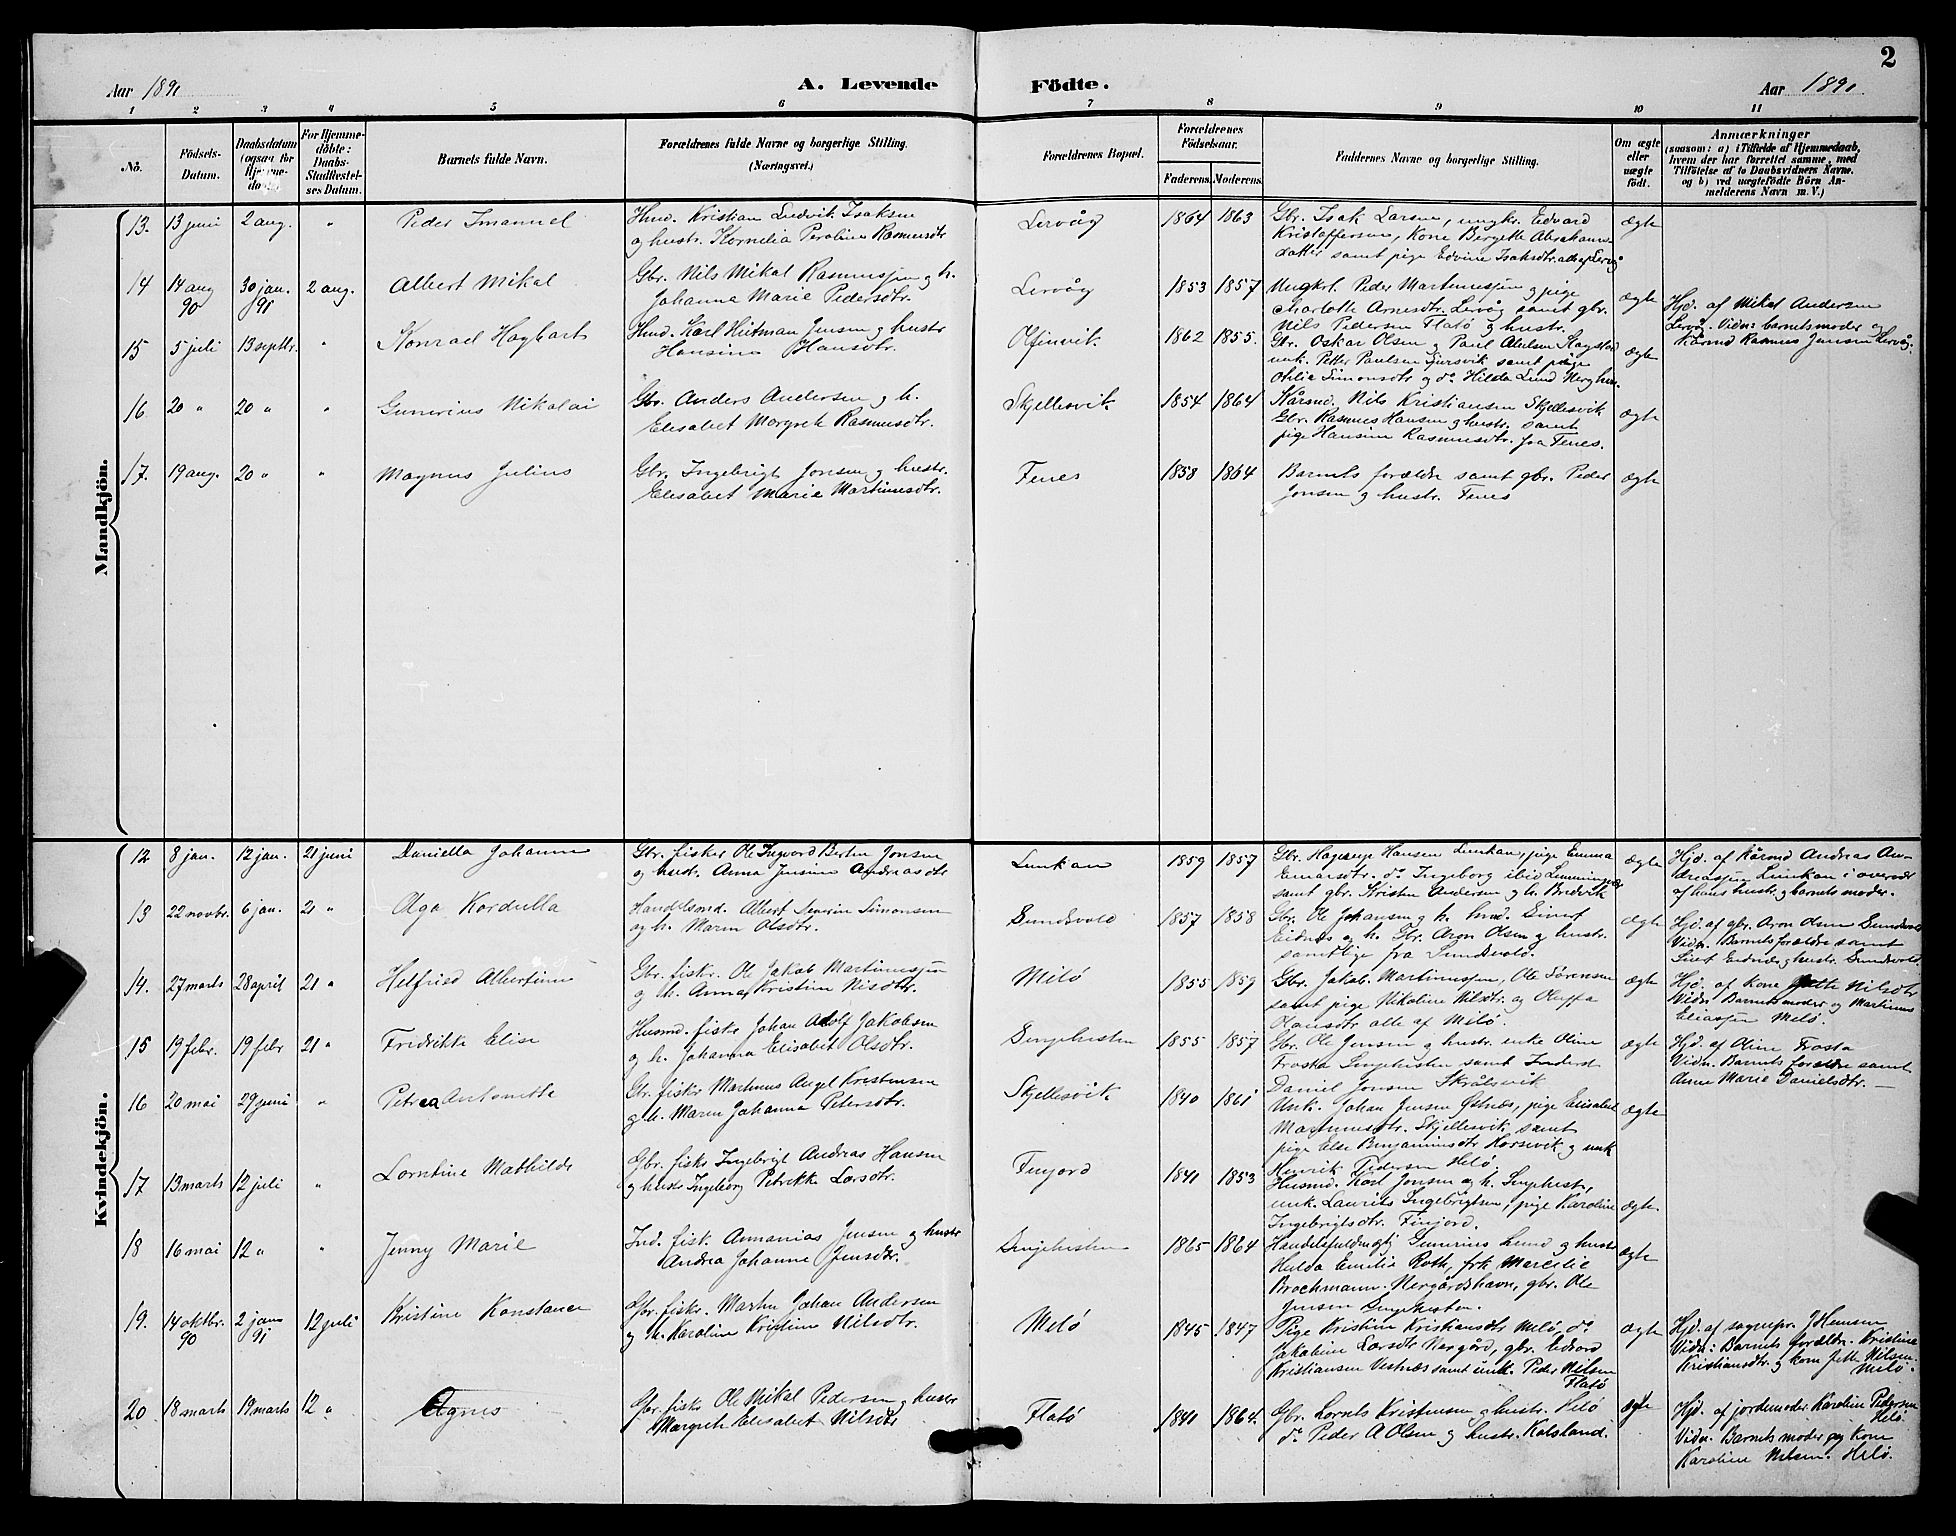 2
Aar 1891
A. Levende
Födte.
Aar 1891
1 2 3 4 5 6 7 8 9 10 11
No.
Födsels-
Datum.
Daabsdatum
(ogsaa for
Hjemme-
døbte).
For Hjemme-
döbte:
Daabs-
Stadfæstel-
ses Datum.
Barnets fulde Navn.
Forældrenes fulde Navne og borgerlige Stilling.
(Næringsvei.)
Forældrenes Bopæl.
Forældrenes
Födselsaar.
Faderens. Moderens.
Faddernes Navne og borgerlige Stilling.
Om ægte
eller
uægte
födt.
Anmærkninger
(saasom: a) i Tilfælde af Hjemmedaab,
hvem der har forrettet samme, med
Tilföielse af to Daabsvidners Navne.
og b) ved uægtefödte Börn An-
melderens Navn m. V.)
Mandkjön.
13. 13 juni 2 aug. " Peder Imanuel
Husmd. Kristian Ludvik Isaksen
og hustr. Kornelia Peroline Rasmusdtr
Lervåg 1864 1863
Gbr. Isak Larsen, ungkr. Edvard
Kristoffersen, Kone Bergette Abrahams-
datter samt pige Edvine Isaksdtr. alle af Lervåg
ægte
14 14 aug 90 30 jan. 91 2 aug. Albert Mikal
Gbr. Nils Mikal Rasmussen og h.
Johanna Marie Pedersdtr.
Lervåg 1853 1857
Ungkrl. Peder Martinussen og pige
Charlotte Arnesdtr. Lervåg samt gbr.
Nils Pedersen Flatö og hustr.
ægte
Hjd. af Mikal Andersen
Lervåg. Vidn: barnets moder og
Kårmd Rasmus Jensen Lervåg.
15 5 juli 13 septbr. " Konrad Hagbart
Husmd. Karl Hitman Jensen og hustr
Hansine Hansdtr.
Olfinvik 1862 1855.
Gbr. Oskar Olsen og Paul Abelsen Skogstad
unk. Petter Paulsen Gjursvik samt pige
Otilie Simonsdtr og do Hilda Lund Nerghvn.
ægte
16 20 " 20 " " Gunerius Nikolai
Gbr. Anders Andersen og h.
Elisabet Margrete Rasmusdtr.
Skjellesvik 1854 1864
Kårmd. Nils Kristiansen Skjellesvik
Gbr. Rasmus Hansen og hustr. samt
pige Hansine Rasmusdtr. fra Fenes.
ægte
17. 19 aug. 20 " " Magnus Julius
Gbr. Ingebrigt Jonsen og hustr.
Elisabet Marie Martinusdtr.
Fenes 1858 1864
Barnets forældre samt gbr. Peder
Jonsen og hustr. Fenes
ægte
Kvindekjön.
12 8 jan. 12 jan. 21 juni Daniella Johanna
Gbr. fisker Ole Ingvard Bertin Jonsen
og hustr. Anna Jensine Andreasdtr
Lunkan 1859 1857
Gbr. Hagerup Hansen Lunkan, pige Emma
Einarsdtr. do Ingeborg ibid
samt gbr. Kristen Andersen og h. Bredvik
ægte
Hjd. af Kårmd Andreas An-
dreassen Lunkan i overvær
af hans hustr. og barnets moder.
13 22 novbr. 6 jan. 21 " Olga Kordulla
Handlsmd. Albert Severin Simonsen
og h. Maren Olsdtr.
Sundsvold 1857 1858
Gbr. Ole Johansen og h. husmd. Sivert
Eidnes og h. Gbr. Aron Olsen og hustr.
samtlige fra Sundsvold.
ægte
Hjd. af gbr. Aron Olsen Sundsvold
Vidn. Barnets forældre samt
Sivert Eidnes og hustr. Sundsvold.
14. 27 marts 28 april 21 " Helfried Albertine
Gbr. fiskr. Ole Jakob Martinussen
og h. Anna Kristine Nilsdtr.
Milö 1855 1859
Gbr. Jakob Martinussen, Ole Sörensen
samt pige Nikoline Nilsdtr. og Oluffa
Hansdtr alle af Milö.
ægte
Hjd. af Kone Jette Nilsdtr
Vidn Barnets moder og Martinus
Eliassen Melö.
15 19 febr. 19 febr 21 " Fredrikke Elise
Husmd. fiskr Johan Adolf Jakobsen
og h. Johanna Elisabet Olsdtr.
Sengehesten 1855 1857
Gbr. Ole Jensen og hustr. enke Oline
Frosta Sengehesten samt Inderst
Daniel Jonsen Skrålsvik
ægte
Hjd. af Oline Frosta
Vidn. Barnets forældre samt
Anne Marie Danielsdtr. —
16 20 mai 29 juni " Petrea Antonette
Gbr. fiskr Martinus Angel Kristensen
og h. Maren Johanna Petersdtr.
Skjellesvik 1840 1861
Unk. Johan Jensen Östnæs, pige Elisabet
Martinusdtr. Skjellesvik samt
pige Else Benjaminsdtr Horsevik og unk
Henrik Pedersen Helö.
ægte
17 13 marts 12 juli " Lorntine Mathilde
Gbr. fiskr Ingebrigt Andreas Hansen
og hustr Ingeborg Petrikke Larsdtr.
Finjord 1841 1853
Husmd. Karl Jonsen og h. Sengehest.,
unk. Laurits Ingebrigtsen, pige Karoline
Ingebrigtsdtr. Finjord.
ægte.
18 16 mai 12 " " Jenny Marie
Ind. fisk. Annanias Jensen og hustr
Andrea Johanne Jensdtr.
Sengehesten 1865 1864
Handelsfuldmegtig Gunerius Lund og hustr
Hulda Emilie Roth, frk Mareilie
Brochmann. Nergårdshavn, gbr. Ole
Jensen Sengehesten.
ægte
19. 14 oktbr. 90 2 janu 91 12 juli Kristine Konstance
Gbr. fiskr. Martin Johan Andersen
og h. Karoline Kristine Nilsdtr.
Melö 1845 1847
Pige Kristine Kristiansdtr Melö, do
Jakobine Larsdtr Nergård, gbr. Edvard
Kristiansen Vestnæs samt unk. Peder Nilsen
Flatö
ægte
Hjd. af sognepr. J Hansen
Vidn: Barnets forældr. Kristina
Kristiansdtr. og kone Jette Nilsen
Melö.
20 18 marts 19 marts 12 " Agnes
Gbr. fiskr Ole Mikal Pedersen og hustr
Margrete Elisabet Nilsdtr
Flatö 1841 1864.
Gbr. Lornts Kristensen og hustr. Helö
do Peder A Olsen og hustr. Kalsland.
ægte
Hjd. af jordemoder Karoline Pedersen
Helö.
Vidn. Barnets moder og Kone
Karoline Nilsen. Helö.